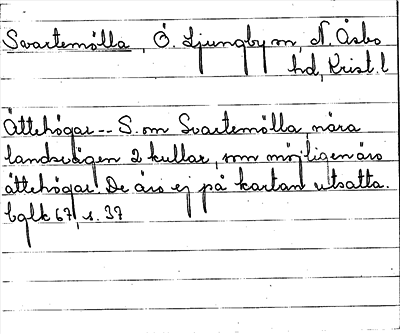 Svartemölla, Ö. Ljungby sn, N. Åsbo
hd, Krist. l
Ättehögar -- S. om Svartemölla, nära
landsvägen 2 kullar, som möjligen äro
ättehögar. De äro ej på kartan utsatta.
bglk 67, s. 37